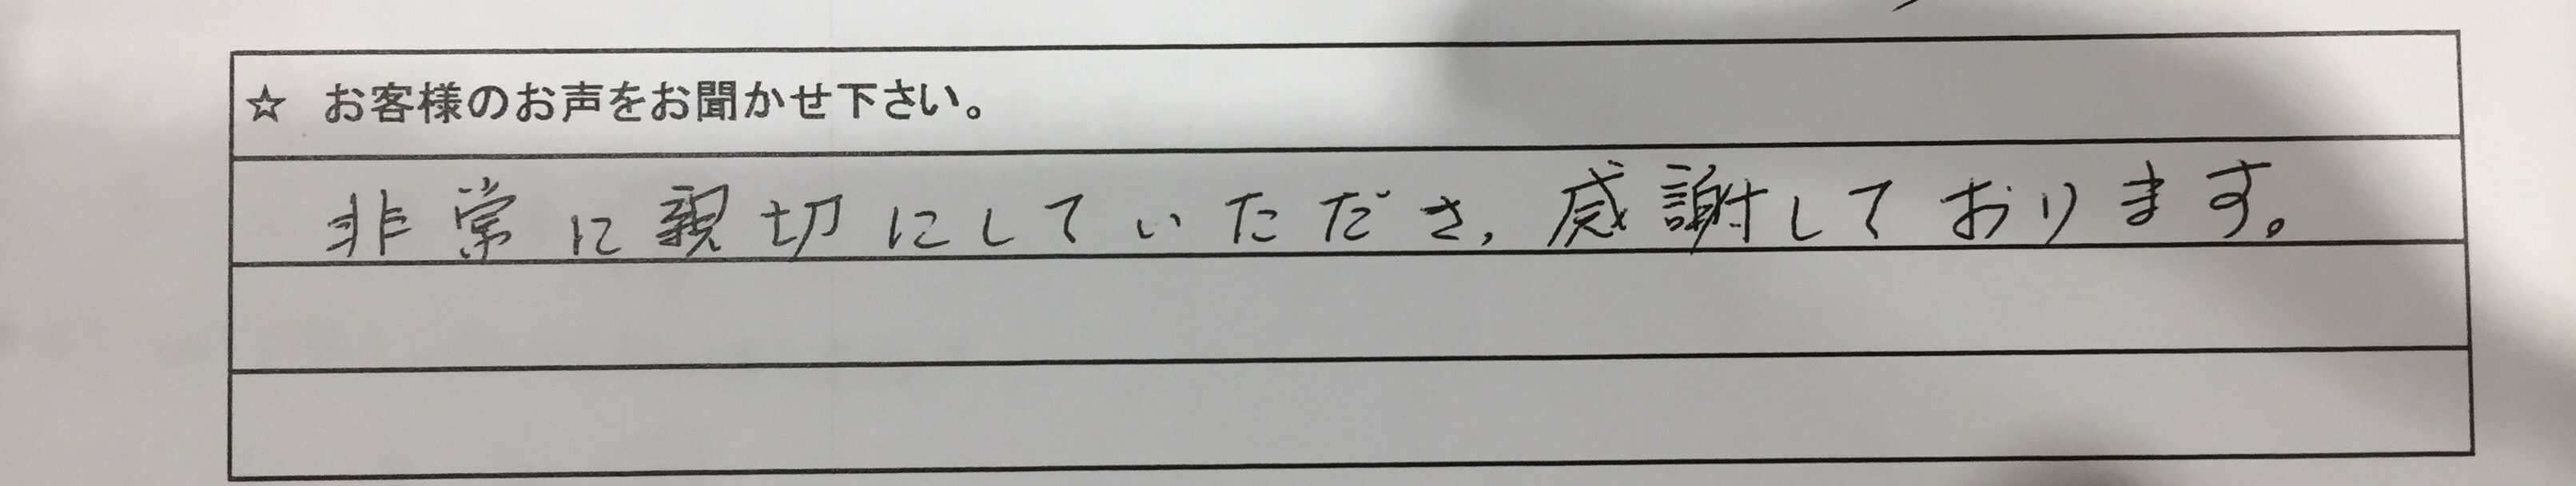 ☆ お客様のお声をお聞かせ下さい。
非常に親切にしていただき、感謝しております。